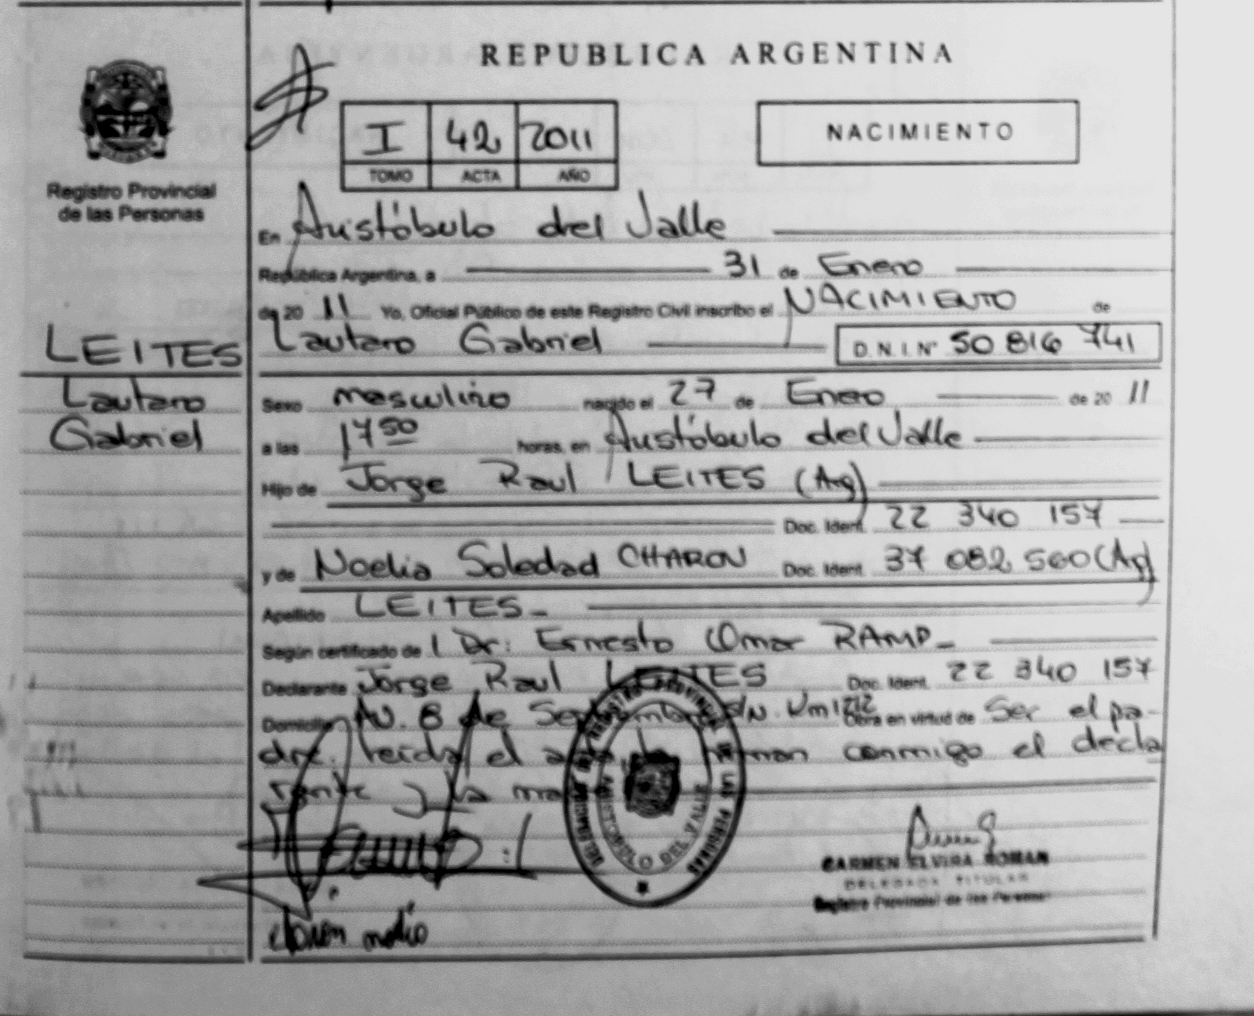 REPUBLICA ARGENTINA
I 42 2011
TOMO ACTA AÑO
NACIMIENTO
Registro Provincial
de las Personas
LEITES
Lautaro
Gabriel
En Aristóbulo del Valle
República Argentina, a 31 de Enero
de 20 11 Yo, Oficial Público de este Registro Civil inscribo el NACIMIENTO de
Lautaro Gabriel D.N.I.Nº 50 816 741
Sexo masculino nacido el 27 de Enero de 20 11
a las 17 50 horas, en Aristóbulo del Valle
Hijo de Jorge Raul LEITES (Arg)
Doc. Ident. 22 340 157
y de Noelia Soledad CHARON Doc. Ident. 37 082 560 (Arg)
Apellido LEITES
Según certificado de Dr: Ernesto Omar RAMP
Declarante Jorge Raul LEITES Doc. Ident. 22 340 157
Domicilio AV. 8 de Septiembre S/N. Km 1212 Obra en virtud de Ser el pa-
dre. leida el firman conmigo el decla
rante y la
REGISTRO PROVINCIAL DE LAS PERSONAS
ARISTOBULO DEL VALLE
CARMEN ELVIRA ROMAN
DELEGADA TITULAR
Registro Provincial de las Personas